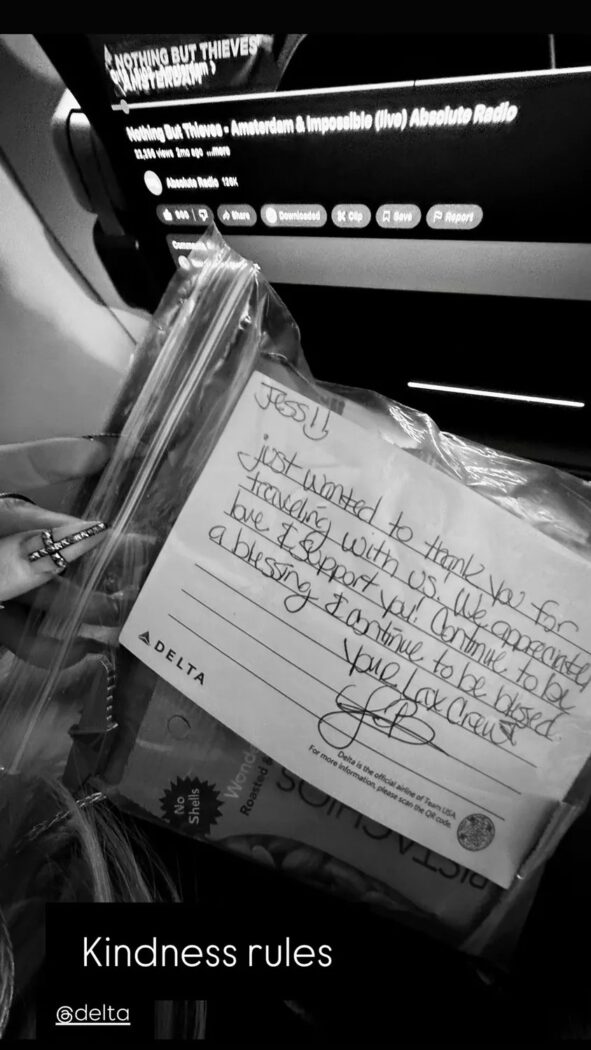 NOTHING BUT THIEVES
AMSTERDAM
Nothing But Thieves - Amsterdam & Impossible (live) Absolute Radio
2mo ago ...more
Absolute Radio 126K
Share Downloaded Clip Save Report
Comments
Jess!!
just wanted to thank you for
traveling with us. We appreciate,
love & support you! Continue to be
a blessing & continue to be blessed.
Your Lax Crew
DELTA
Delta is the official airline of Team USA.
For more information, please scan the QR code.
No
Shells
Wond
Roasted &
PISTACHIOS
Kindness rules
@delta